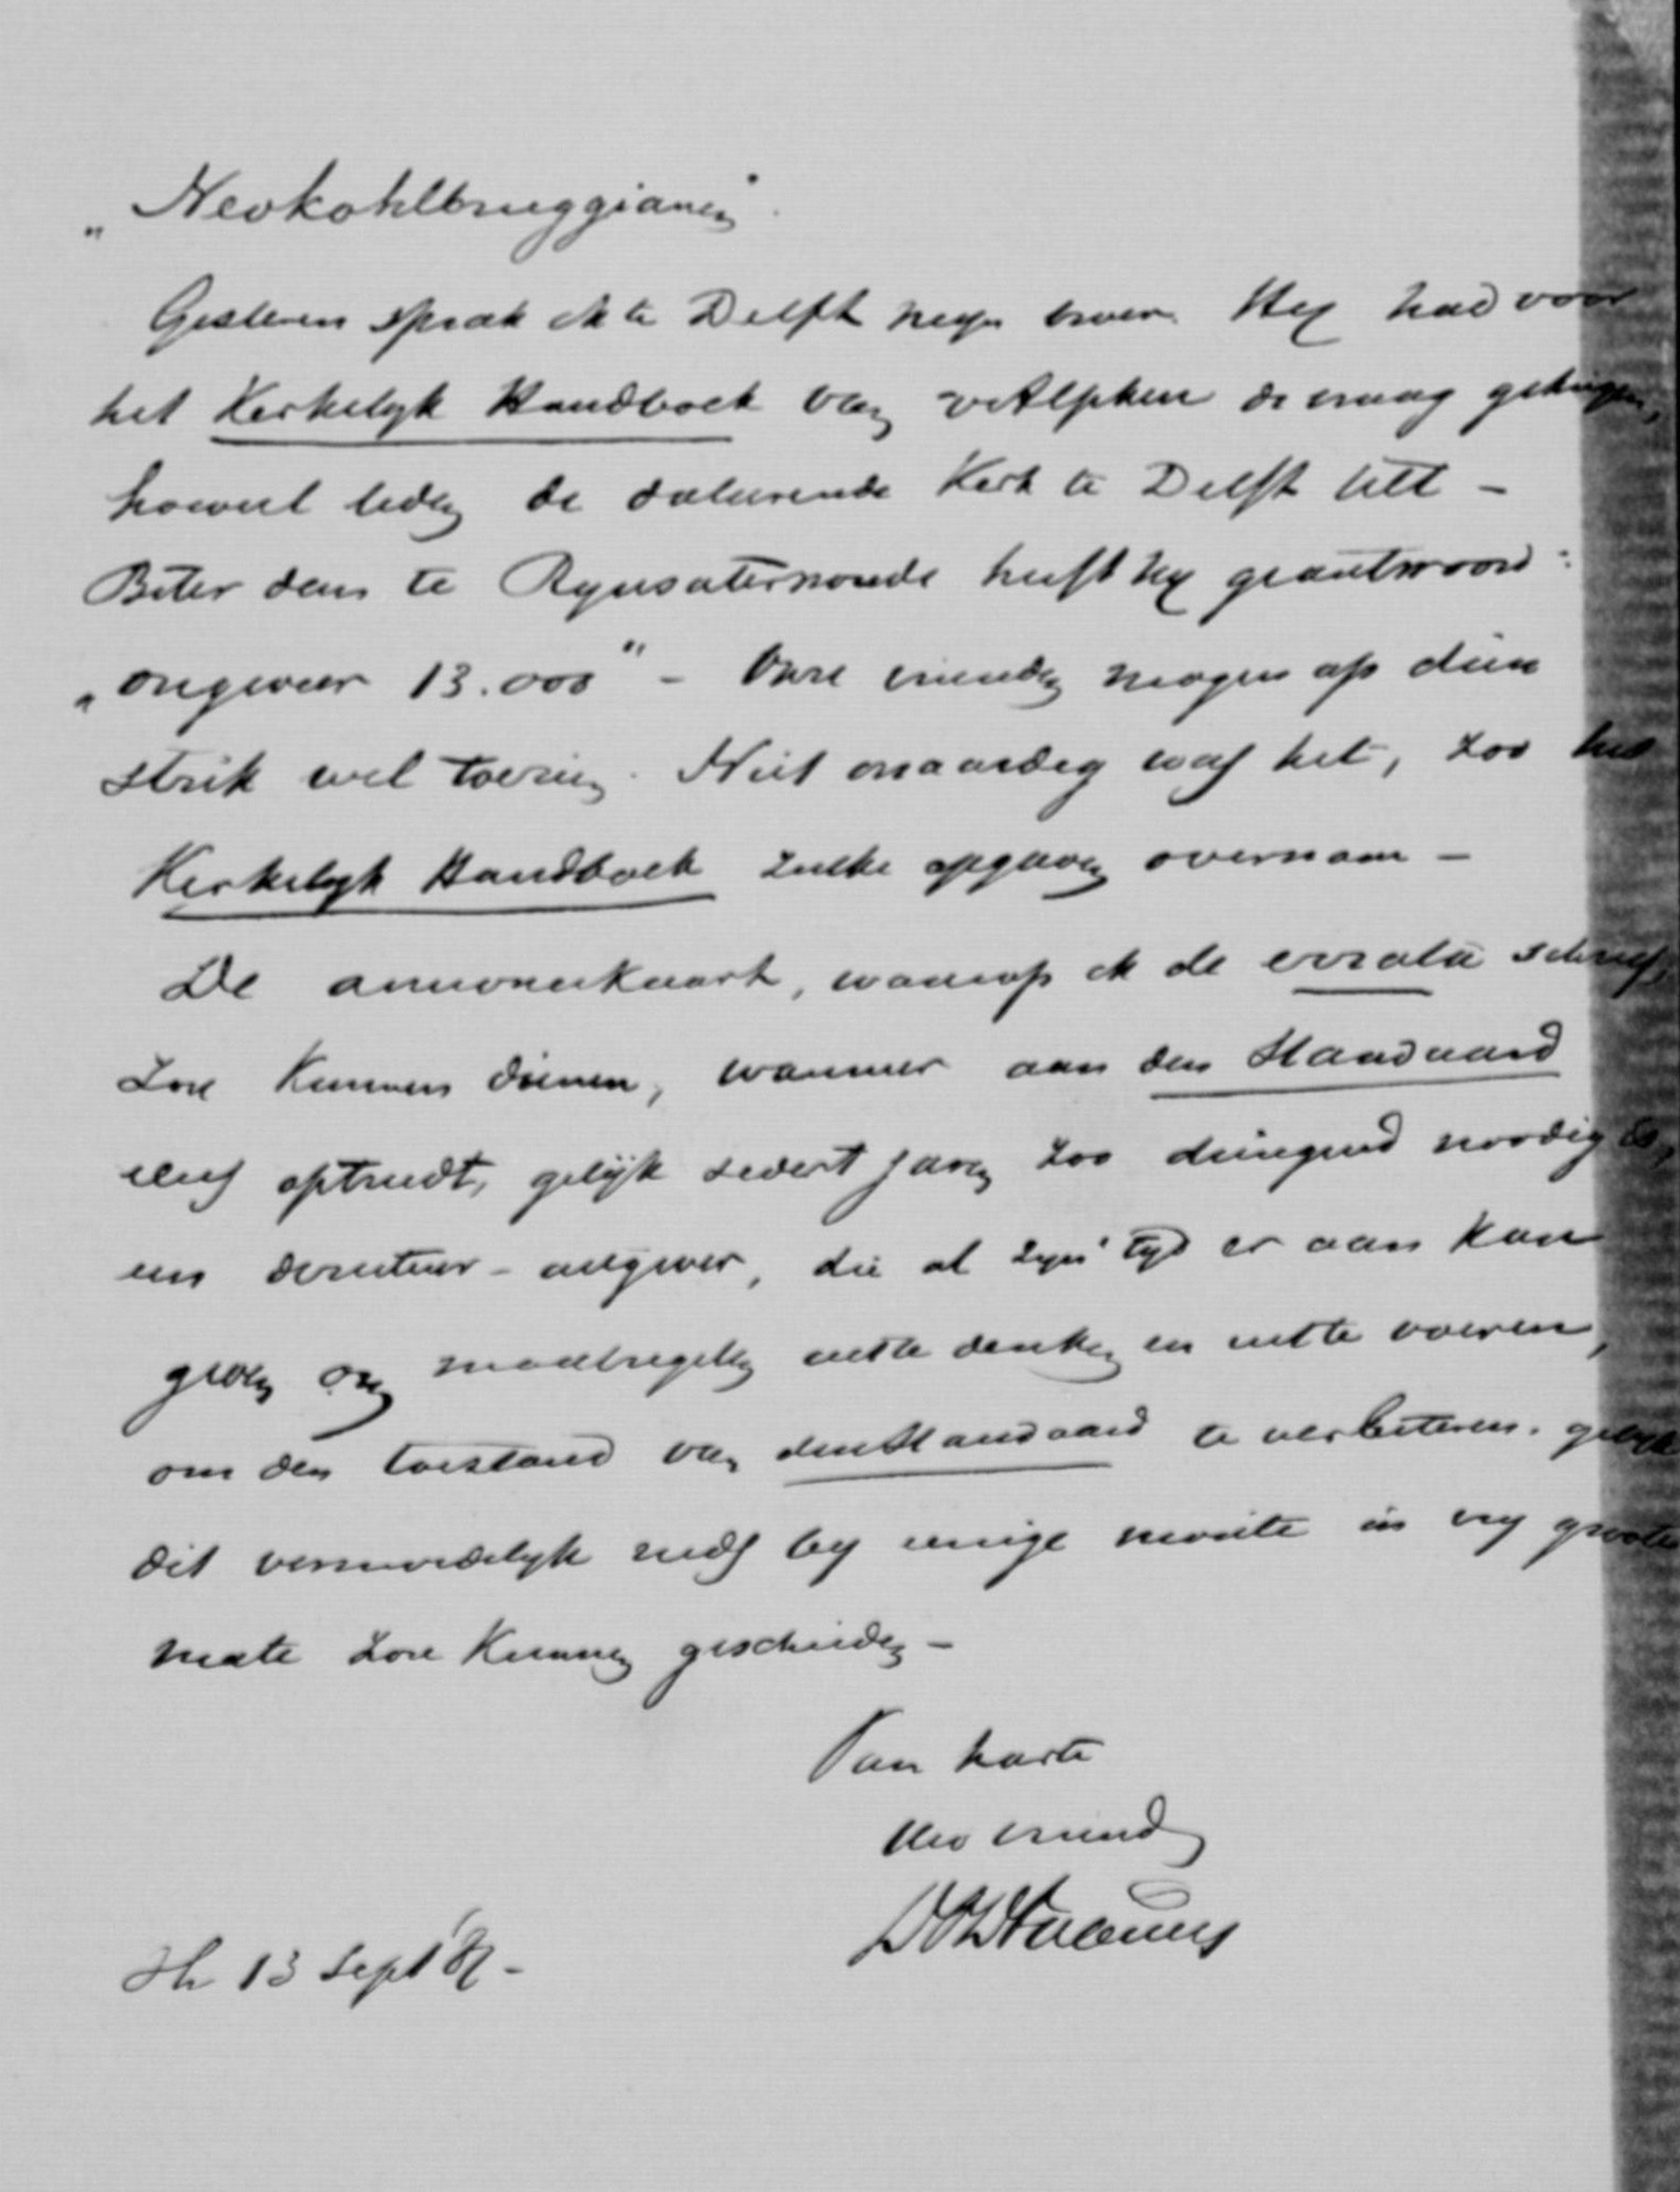 „Neokohlbruggianen”.
Gisteren sprak ik te Delft mijn broer. Hij had voor
het Kerkelyk Handboek van v Alphen de vraag gekregen,
hoeveel leden de doleerende Kerk te Delft telt –
Beter dan te Rynsaterwoude heeft hy geantwoord:
„ongeveer 13.000” – Onze vrienden mogen op deze
strik wel toezien. Niet onaardig was het, zoo het
Kerkelyk Handboek zulke opgaven overnam –
De annoncekaart, waarop ik de errata schreef,
zou kunnen dienen, wanneer aan den Standaard
eens optreedt, gelijk sedert jaren zoo dringend noodig is,
een directeur-uitgever, die al zyn tyd er aan kan
geven om maatregelen uit te denken en uit te voeren,
om den toestand van den Standaard te verbeteren. gelyk
dit vermoedelyk reeds by eenige moeite in vry groote
mate zou kunnen geschieden –
Van harte
Uw vriend
sh 13 Sept 87 –